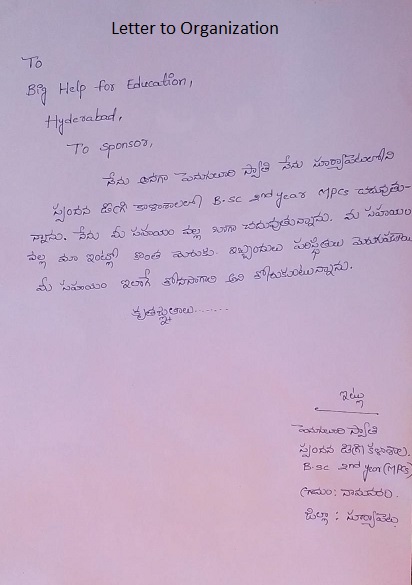 Letter to Organization
To
Big Help for Education,
Hyderabad,
To Sponsor,
నేను అనగా పెనుగులూరి స్వాతి నేను సూర్యాపేటలోని
స్పందన డిగ్రీ కాళాశాలలో B.sc 2nd year MPCs చదువుతు-
న్నాను. నేను మీ సహయం వల్ల బాగా చదువుతున్నాను. మీ సహయం
వల్ల మా ఇంట్లో కొంత వరుకు ఇబ్బందులు పరిస్థితులు
మీ సహయం ఇలాగే కోనసాగాలి అని కోరుకుంటున్నాను.
కృతజ్ఞతలు.......
ఇట్లు
పెనుగులూరి స్వాతి
స్పందన డిగ్రీ కళాశాల.
B.sc 2nd year (MPCs)
గ్రామం: నామవరం.
జిల్లా : సూర్యాపేట.